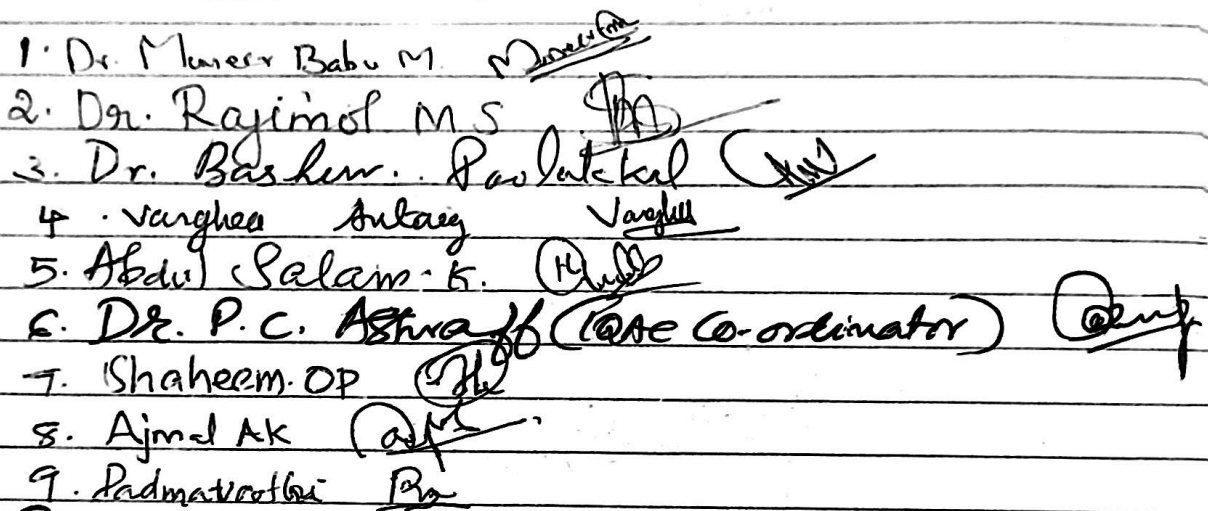 1. Dr. Muneer Babu M.
2. Dr. Rajimol M S
3. Dr. Basheer.. Poolakkal
4. Varghese Antony
5. Abdul Salam. K.
6. Dr. P. C. Ashraff (IQAC Co-ordinator)
7. Shaheem. OP
8. Ajmal AK
9. Padmavathi